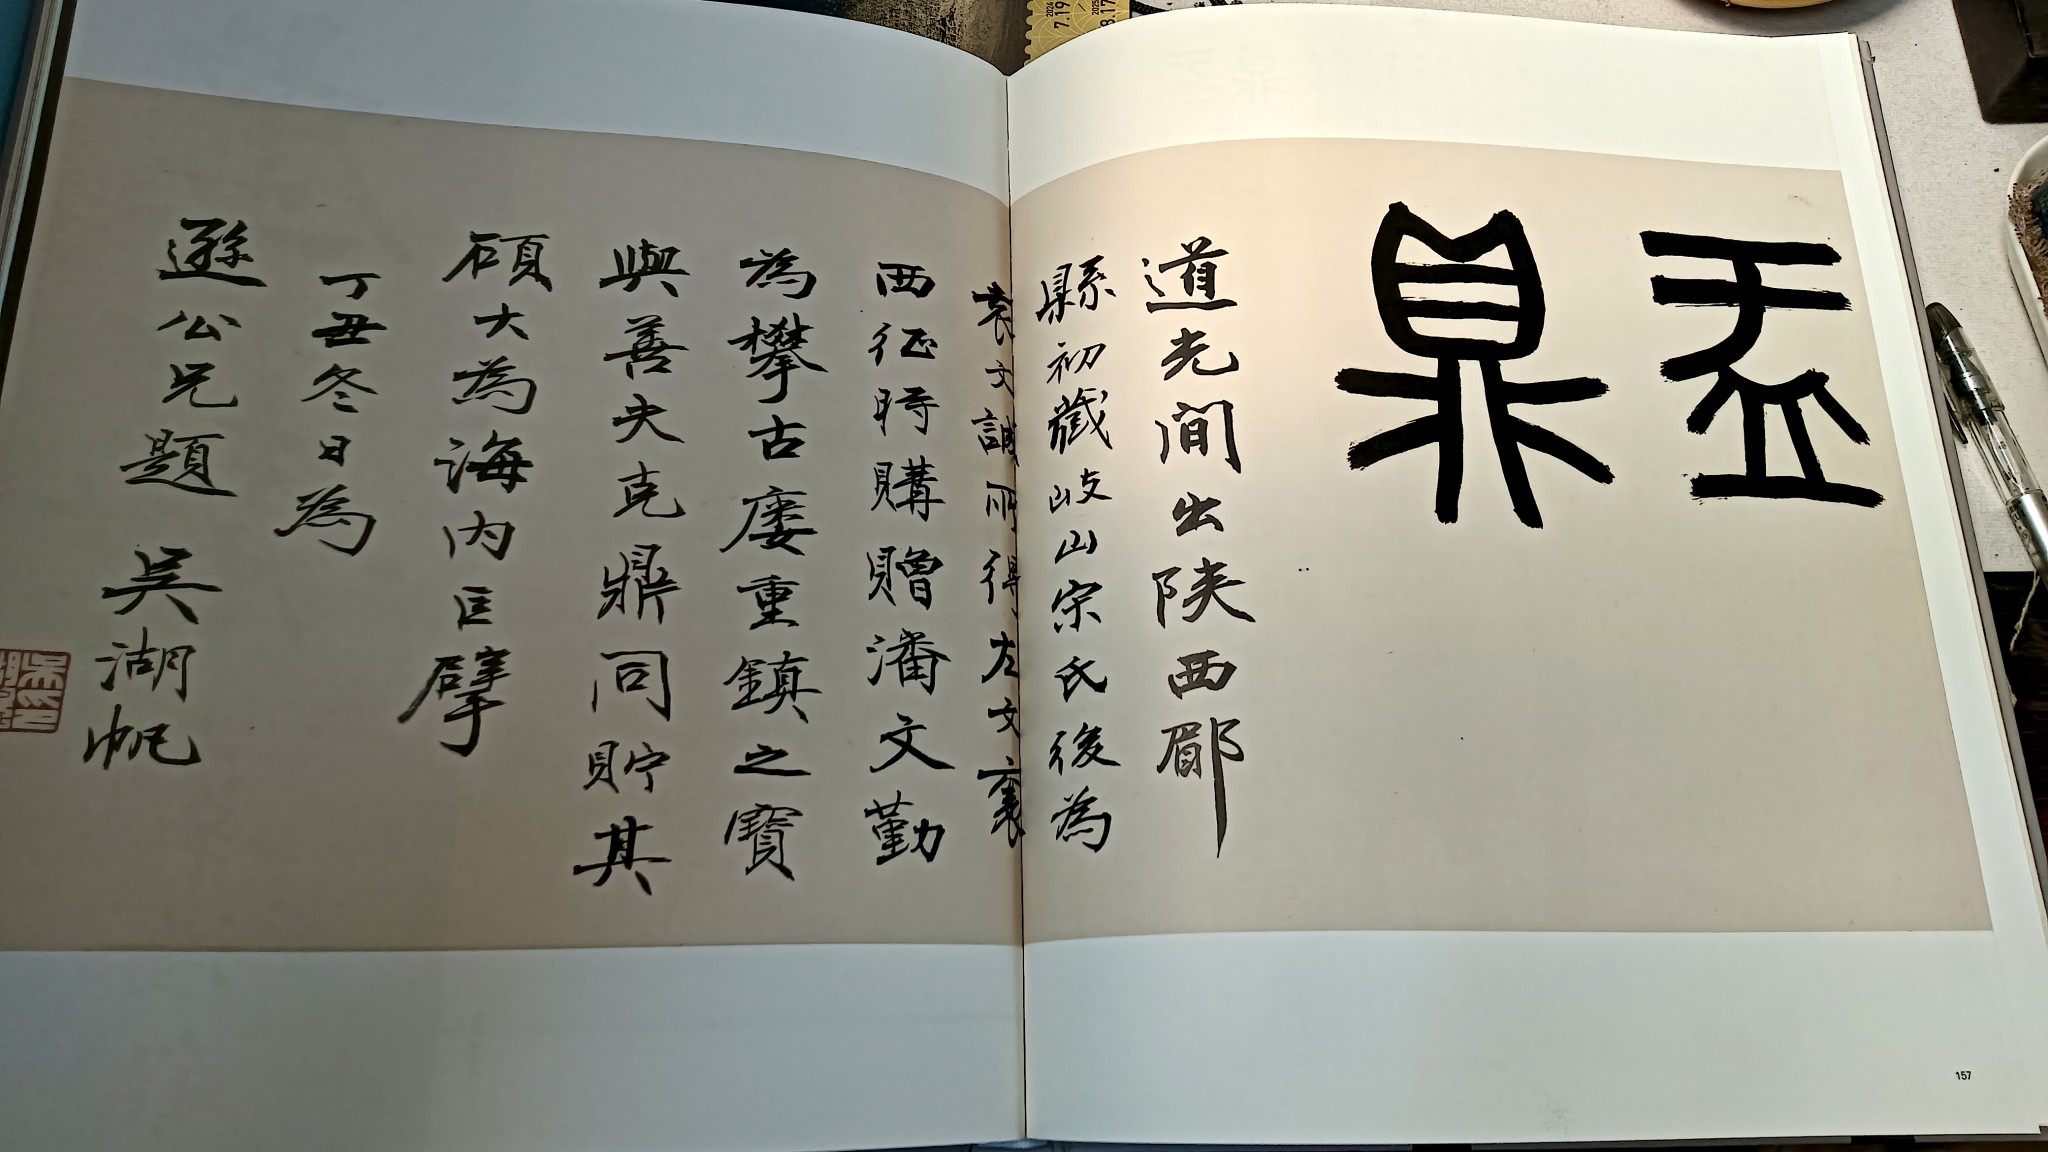 盂
鼎
道光間出陝西郿
縣初藏岐山宋氏後為
袁文誠所得左文襄
西征時購贈潘文勤
為攀古廔重鎮之寶
與善夫克鼎同貯其
碩大為海內巨擘
丁丑冬日為
遜公兄題 吳湖帆
157
2024
7.19
2025
8.17